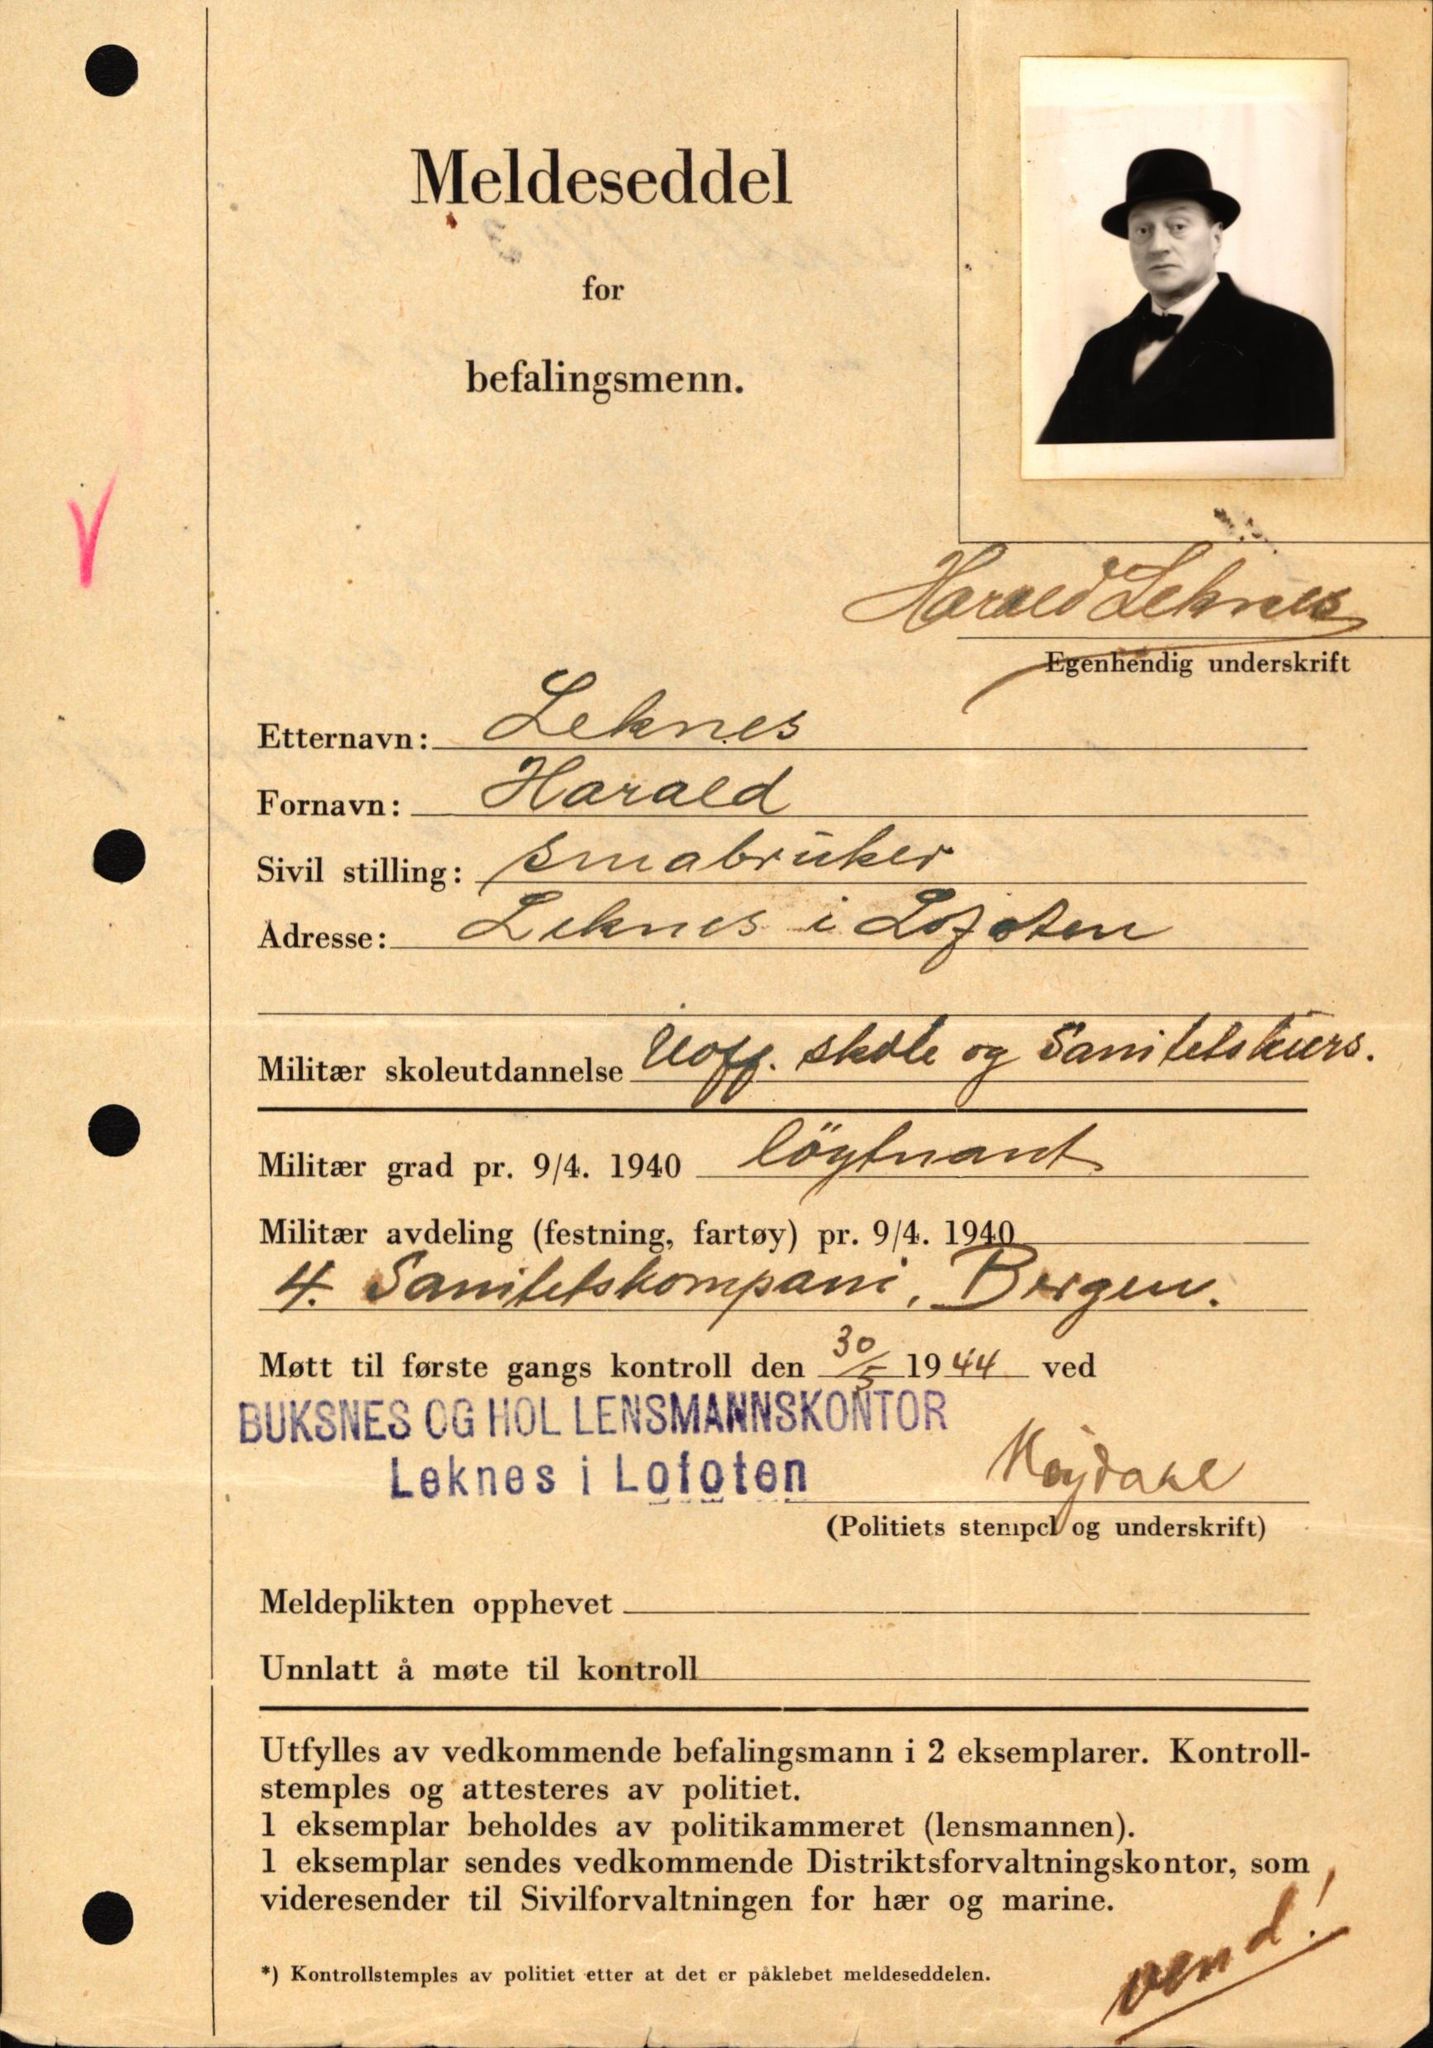 Meldeseddel
for
befalingsmenn.
Harald Leknes
Egenhendig underskrift
Etternavn: Leknes
Fornavn: Harald
Sivil stilling: småbruker
Adresse: Leknes i Lofoten
Militær skoleutdannelse Uoff. skole og Sanitetskurs.
Militær grad pr. 9/4. 1940 löytnant
Militær avdeling (festning, fartøy) pr. 9/4. 1940
4. Sanitetskompani, Bergen.
Møtt til første gangs kontroll den 30/5 1944 ved
BUKSNES OG HOL LENSMANNSKONTOR
Leknes i Lofoten
(Politiets stempel og underskrift)
Meldeplikten opphevet
Unnlatt å møte til kontroll
Utfylles av vedkommende befalingsmann i 2 eksemplarer. Kontroll-
stemples og attesteres av politiet.
1 eksemplar beholdes av politikammeret (lensmannen).
1 eksemplar sendes vedkommende Distriktsforvaltningskontor, som
videresender til Sivilforvaltningen for hær og marine.
vend!
*) Kontrollstemples av politiet etter at det er påklebet meldeseddelen.